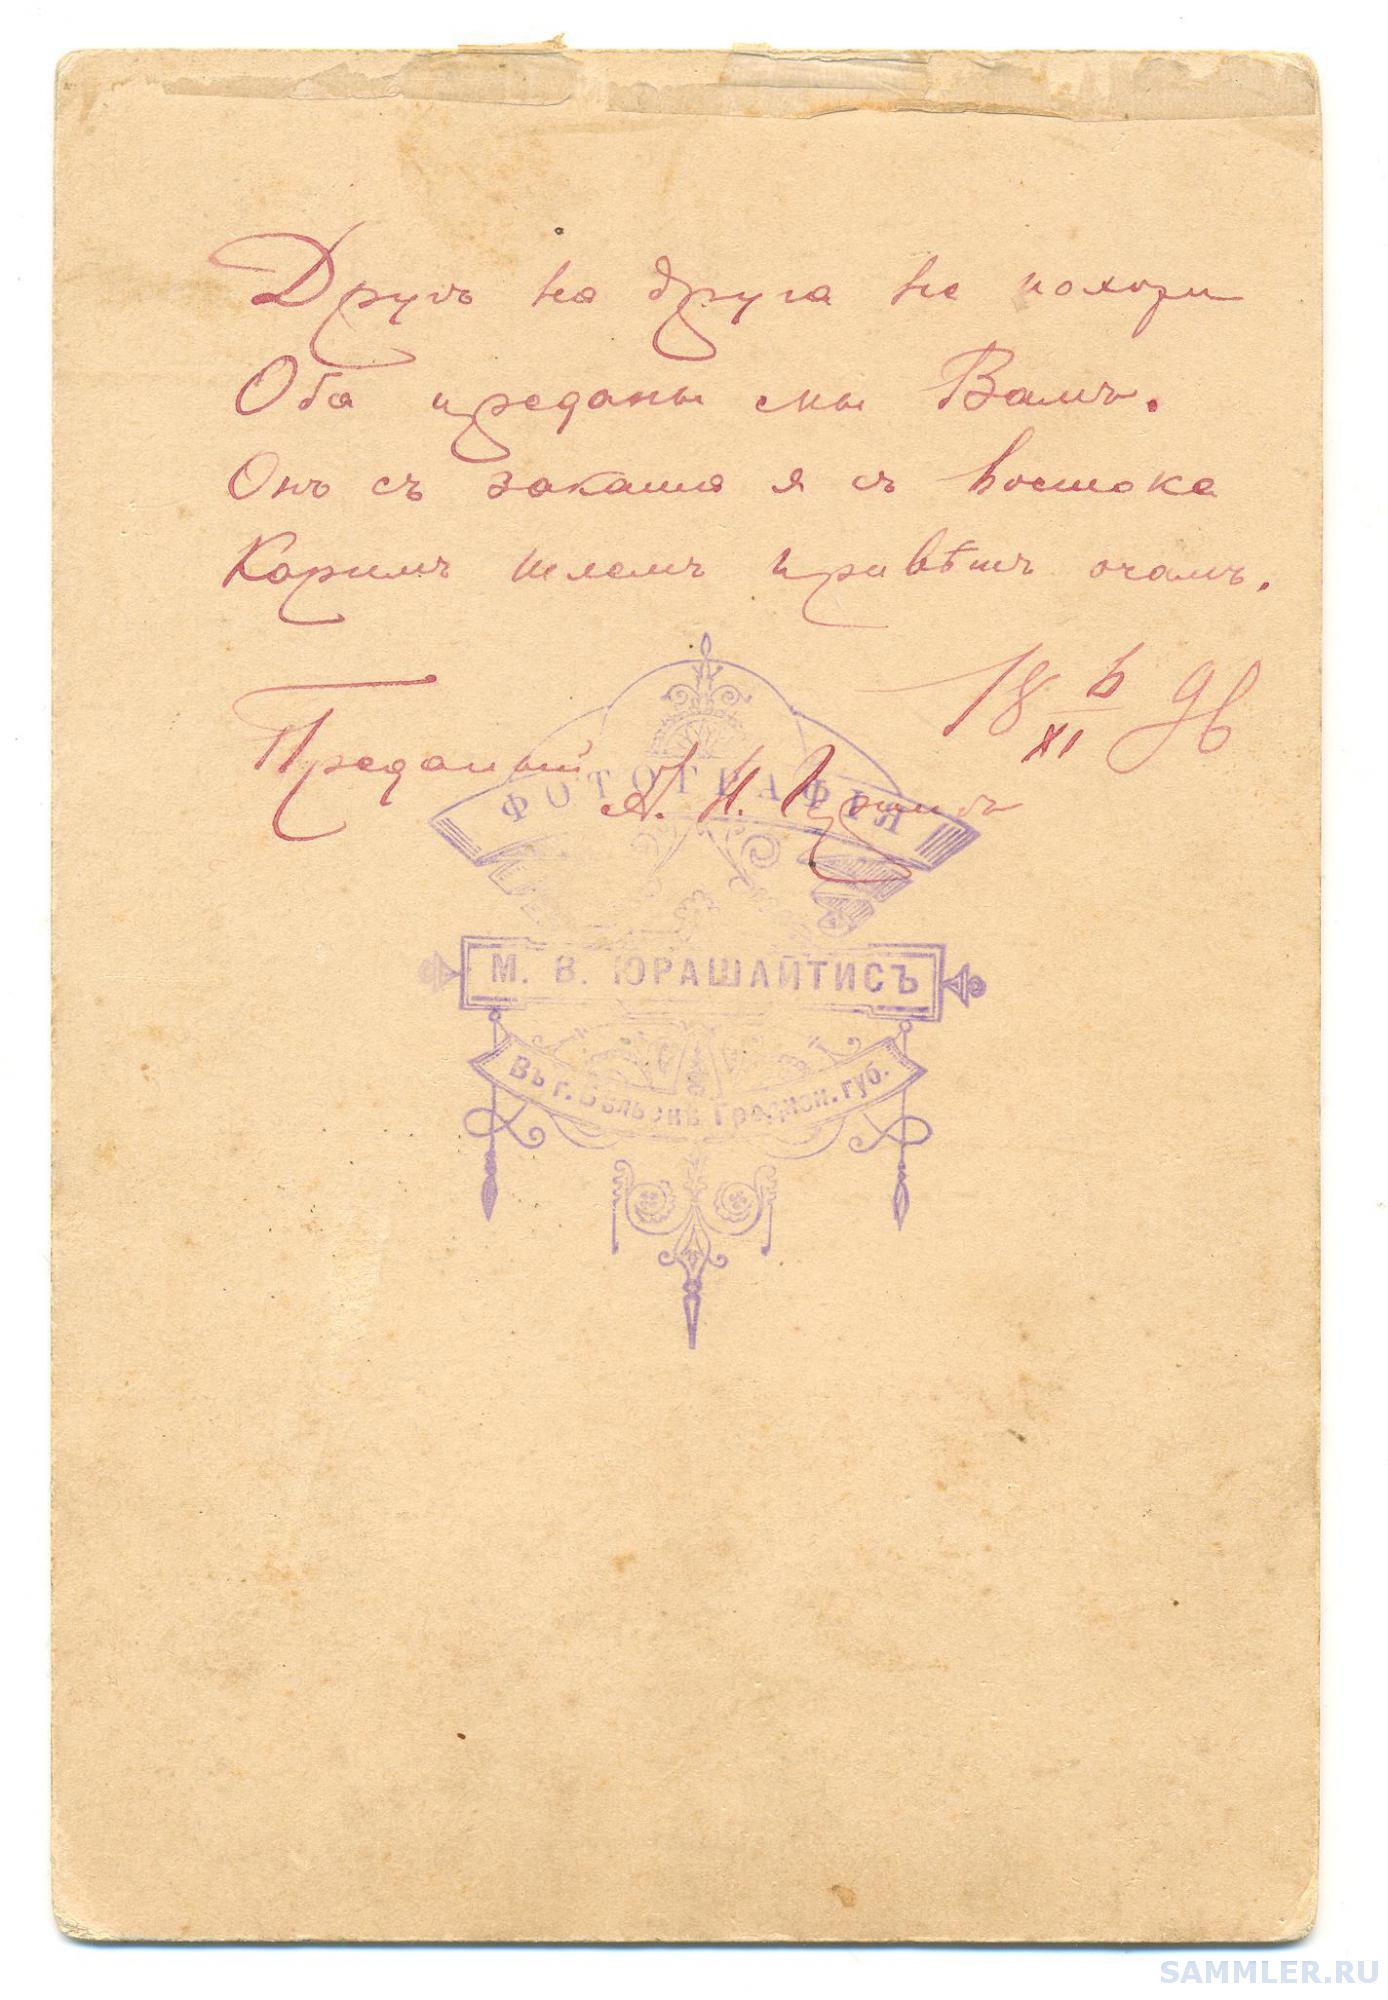 Другъ на друга не похожи
Оба преданы мы Вамъ.
Онъ съ заката я съ востока
Каримъ шлемъ привѣтъ очамъ.
18 6/XI 96
Преданный А. Н.
ФОТОГРАФІЯ
М. В. ЮРАШАЙТИСЪ
Въ г. Бѣльскѣ Гроднен. губ.
SAMMLER.RU